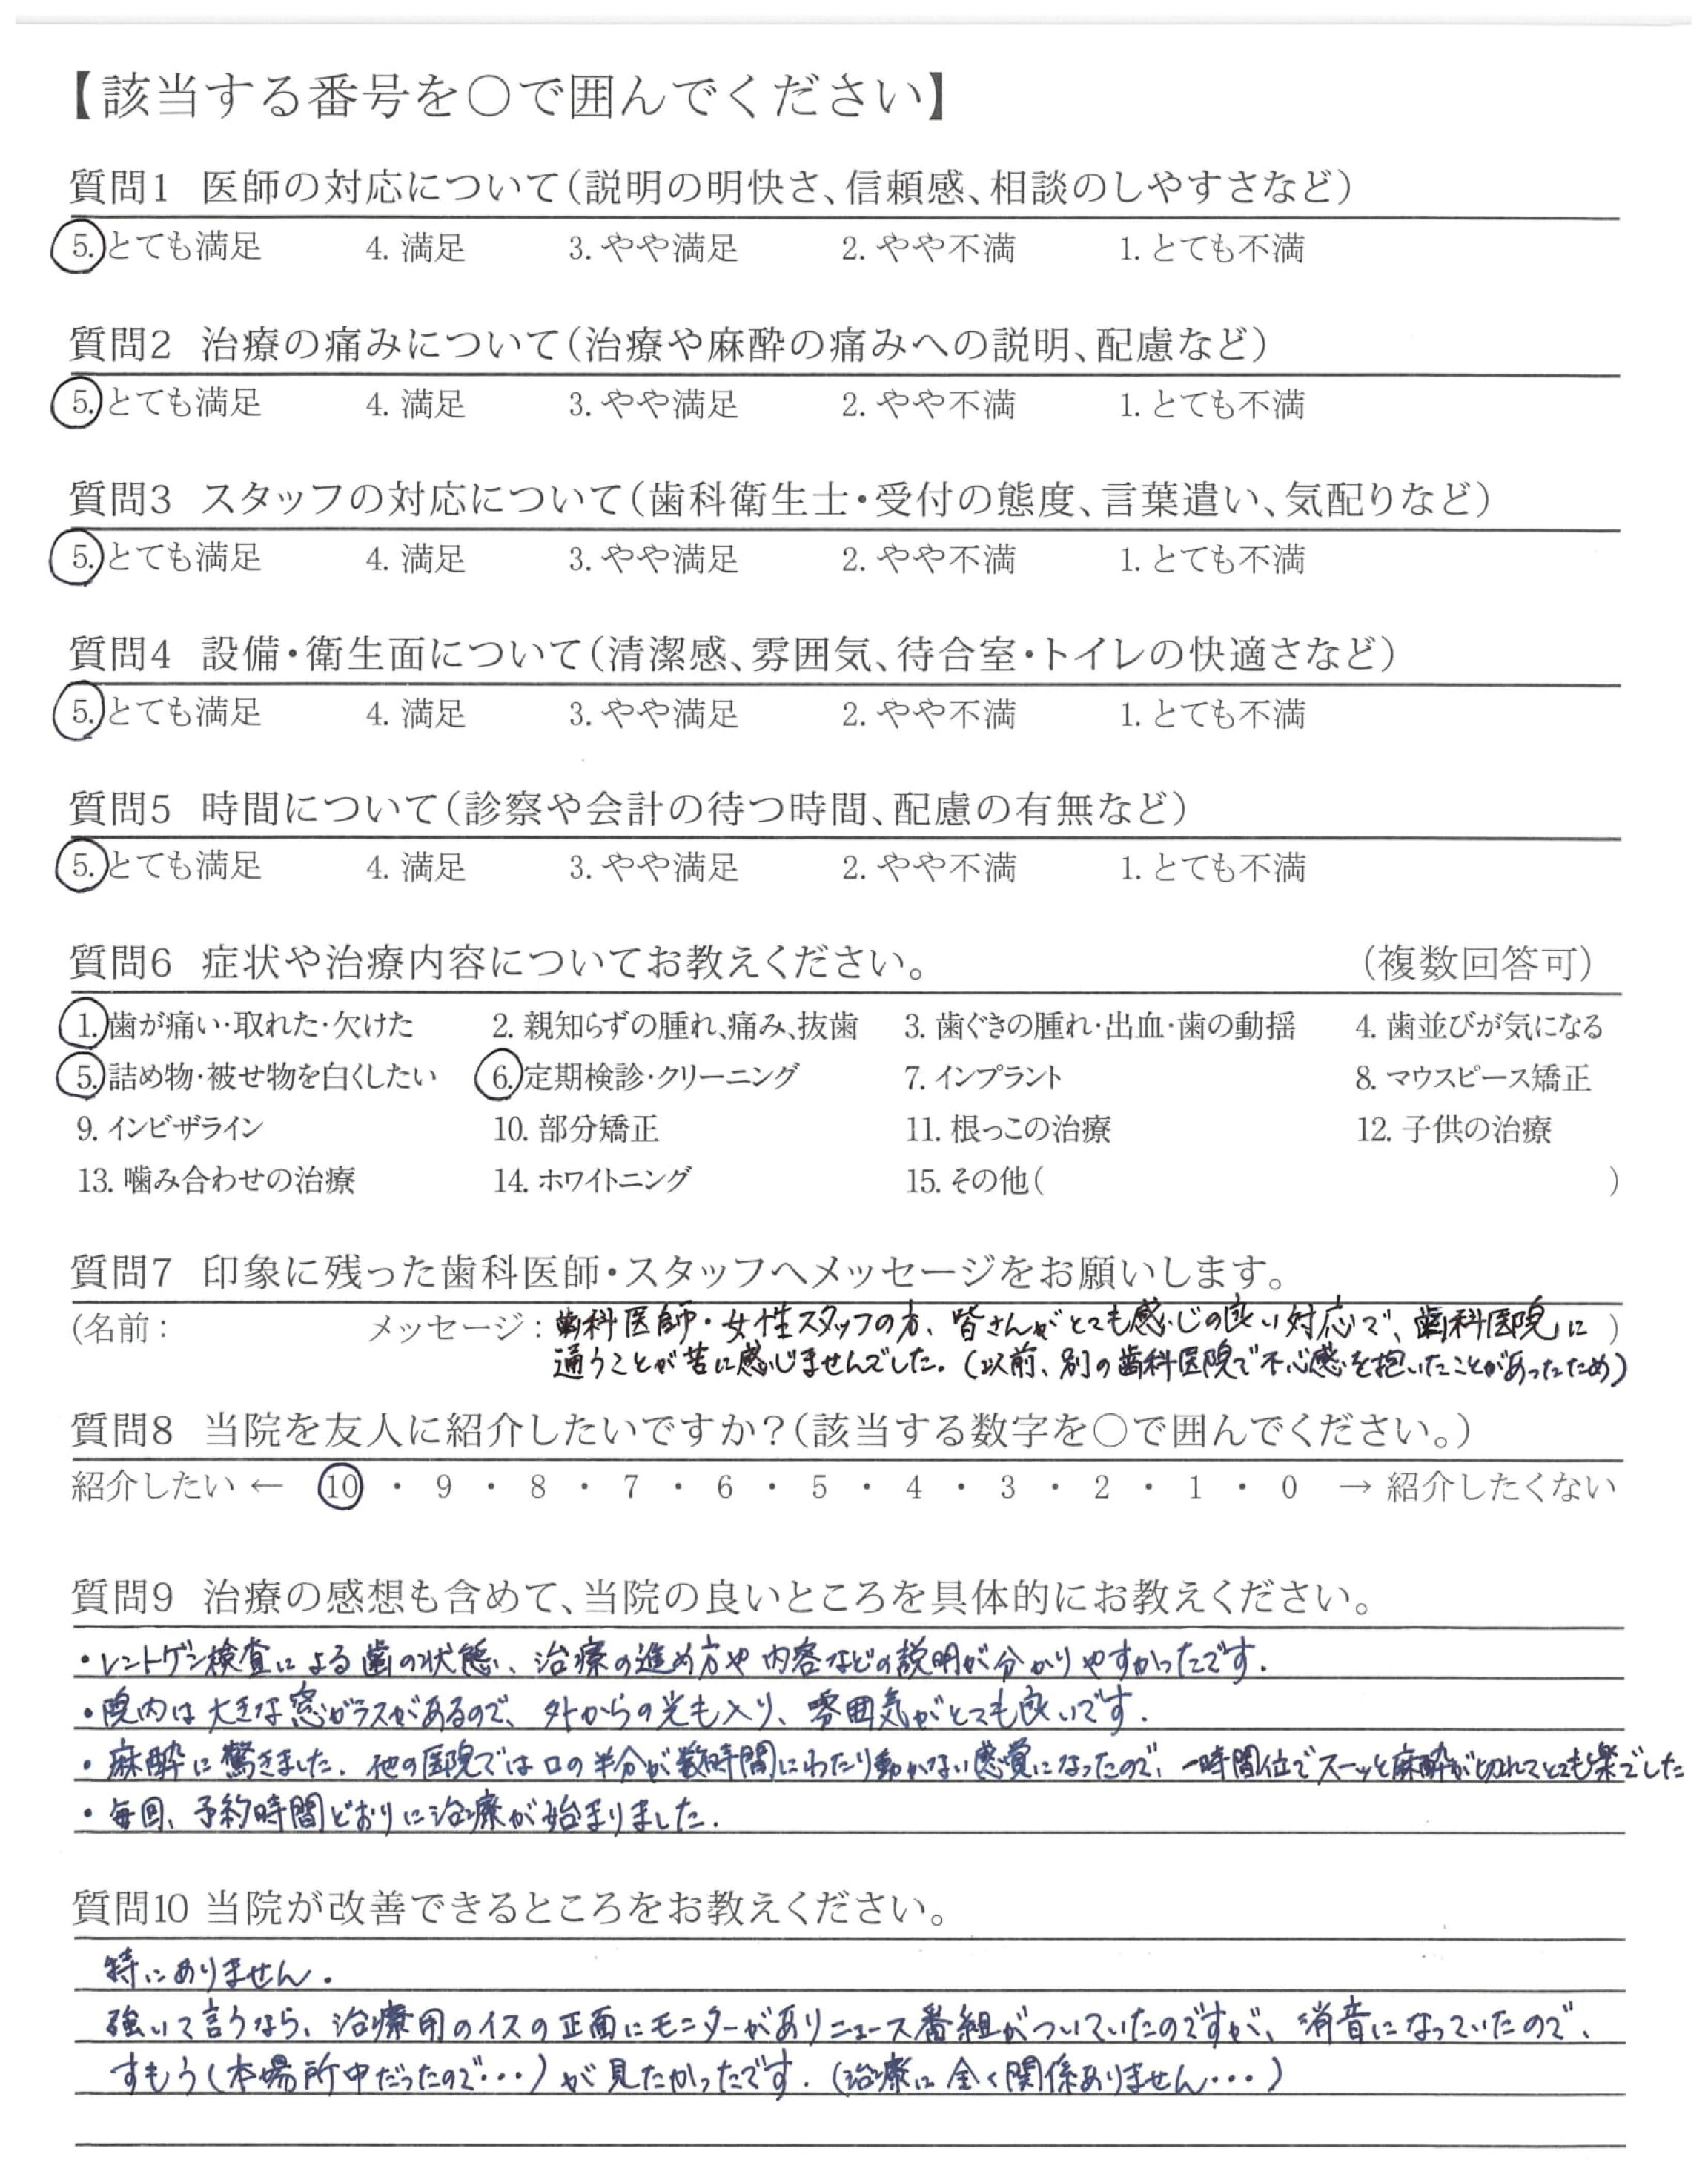 【該当する番号を○で囲んでください】
質問1 医師の対応について（説明の明快さ、信頼感、相談のしやすさなど）
5. とても満足 4. 満足 3. やや満足 2. やや不満 1. とても不満
質問2 治療の痛みについて（治療や麻酔の痛みへの説明、配慮など）
5. とても満足 4. 満足 3. やや満足 2. やや不満 1. とても不満
質問3 スタッフの対応について（歯科衛生士・受付の態度、言葉遣い、気配りなど）
5. とても満足 4. 満足 3. やや満足 2. やや不満 1. とても不満
質問4 設備・衛生面について（清潔感、雰囲気、待合室・トイレの快適さなど）
5. とても満足 4. 満足 3. やや満足 2. やや不満 1. とても不満
質問5 時間について（診察や会計の待つ時間、配慮の有無など）
5. とても満足 4. 満足 3. やや満足 2. やや不満 1. とても不満
質問6 症状や治療内容についてお教えください。 （複数回答可）
1. 歯が痛い・取れた・欠けた 2. 親知らずの腫れ、痛み、抜歯 3. 歯ぐきの腫れ・出血・歯の動揺 4. 歯並びが気になる
5. 詰め物・被せ物を白くしたい 6. 定期検診・クリーニング 7. インプラント 8. マウスピース矯正
9. インビザライン 10. 部分矯正 11. 根っこの治療 12. 子供の治療
13. 噛み合わせの治療 14. ホワイトニング 15. その他（ ）
質問7 印象に残った歯科医師・スタッフへメッセージをお願いします。
（名前： メッセージ：歯科医師・女性スタッフの方、皆さんがとても感じの良い対応で、歯科医院に ）
通うことが苦に感じませんでした。（以前、別の歯科医院で不心感を抱いたことがあったため）
質問8 当院を友人に紹介したいですか？（該当する数字を○で囲んでください。）
紹介したい ← 10 ・ 9 ・ 8 ・ 7 ・ 6 ・ 5 ・ 4 ・ 3 ・ 2 ・ 1 ・ 0 → 紹介したくない
質問9 治療の感想も含めて、当院の良いところを具体的にお教えください。
・レントゲン検査による歯の状態、治療の進め方や内容などの説明が分かりやすかったです。
・院内は大きな窓ガラスがあるので、外からの光も入り、雰囲気がとても良いです。
・麻酔に驚きました。他の医院では口の半分が数時間にわたり動かない感覚になったので、一時間位でスーッと麻酔が切れてとても楽でした
・毎回、予約時間どおりに治療が始まりました。
質問10 当院が改善できるところをお教えください。
特にありません。
強いて言うなら、治療用のイスの正面にモニターがありニュース番組がついていたのですが、消音になっていたので、
すもう（本場所中だったので・・・）が見たかったです。（治療に全く関係ありません・・・）